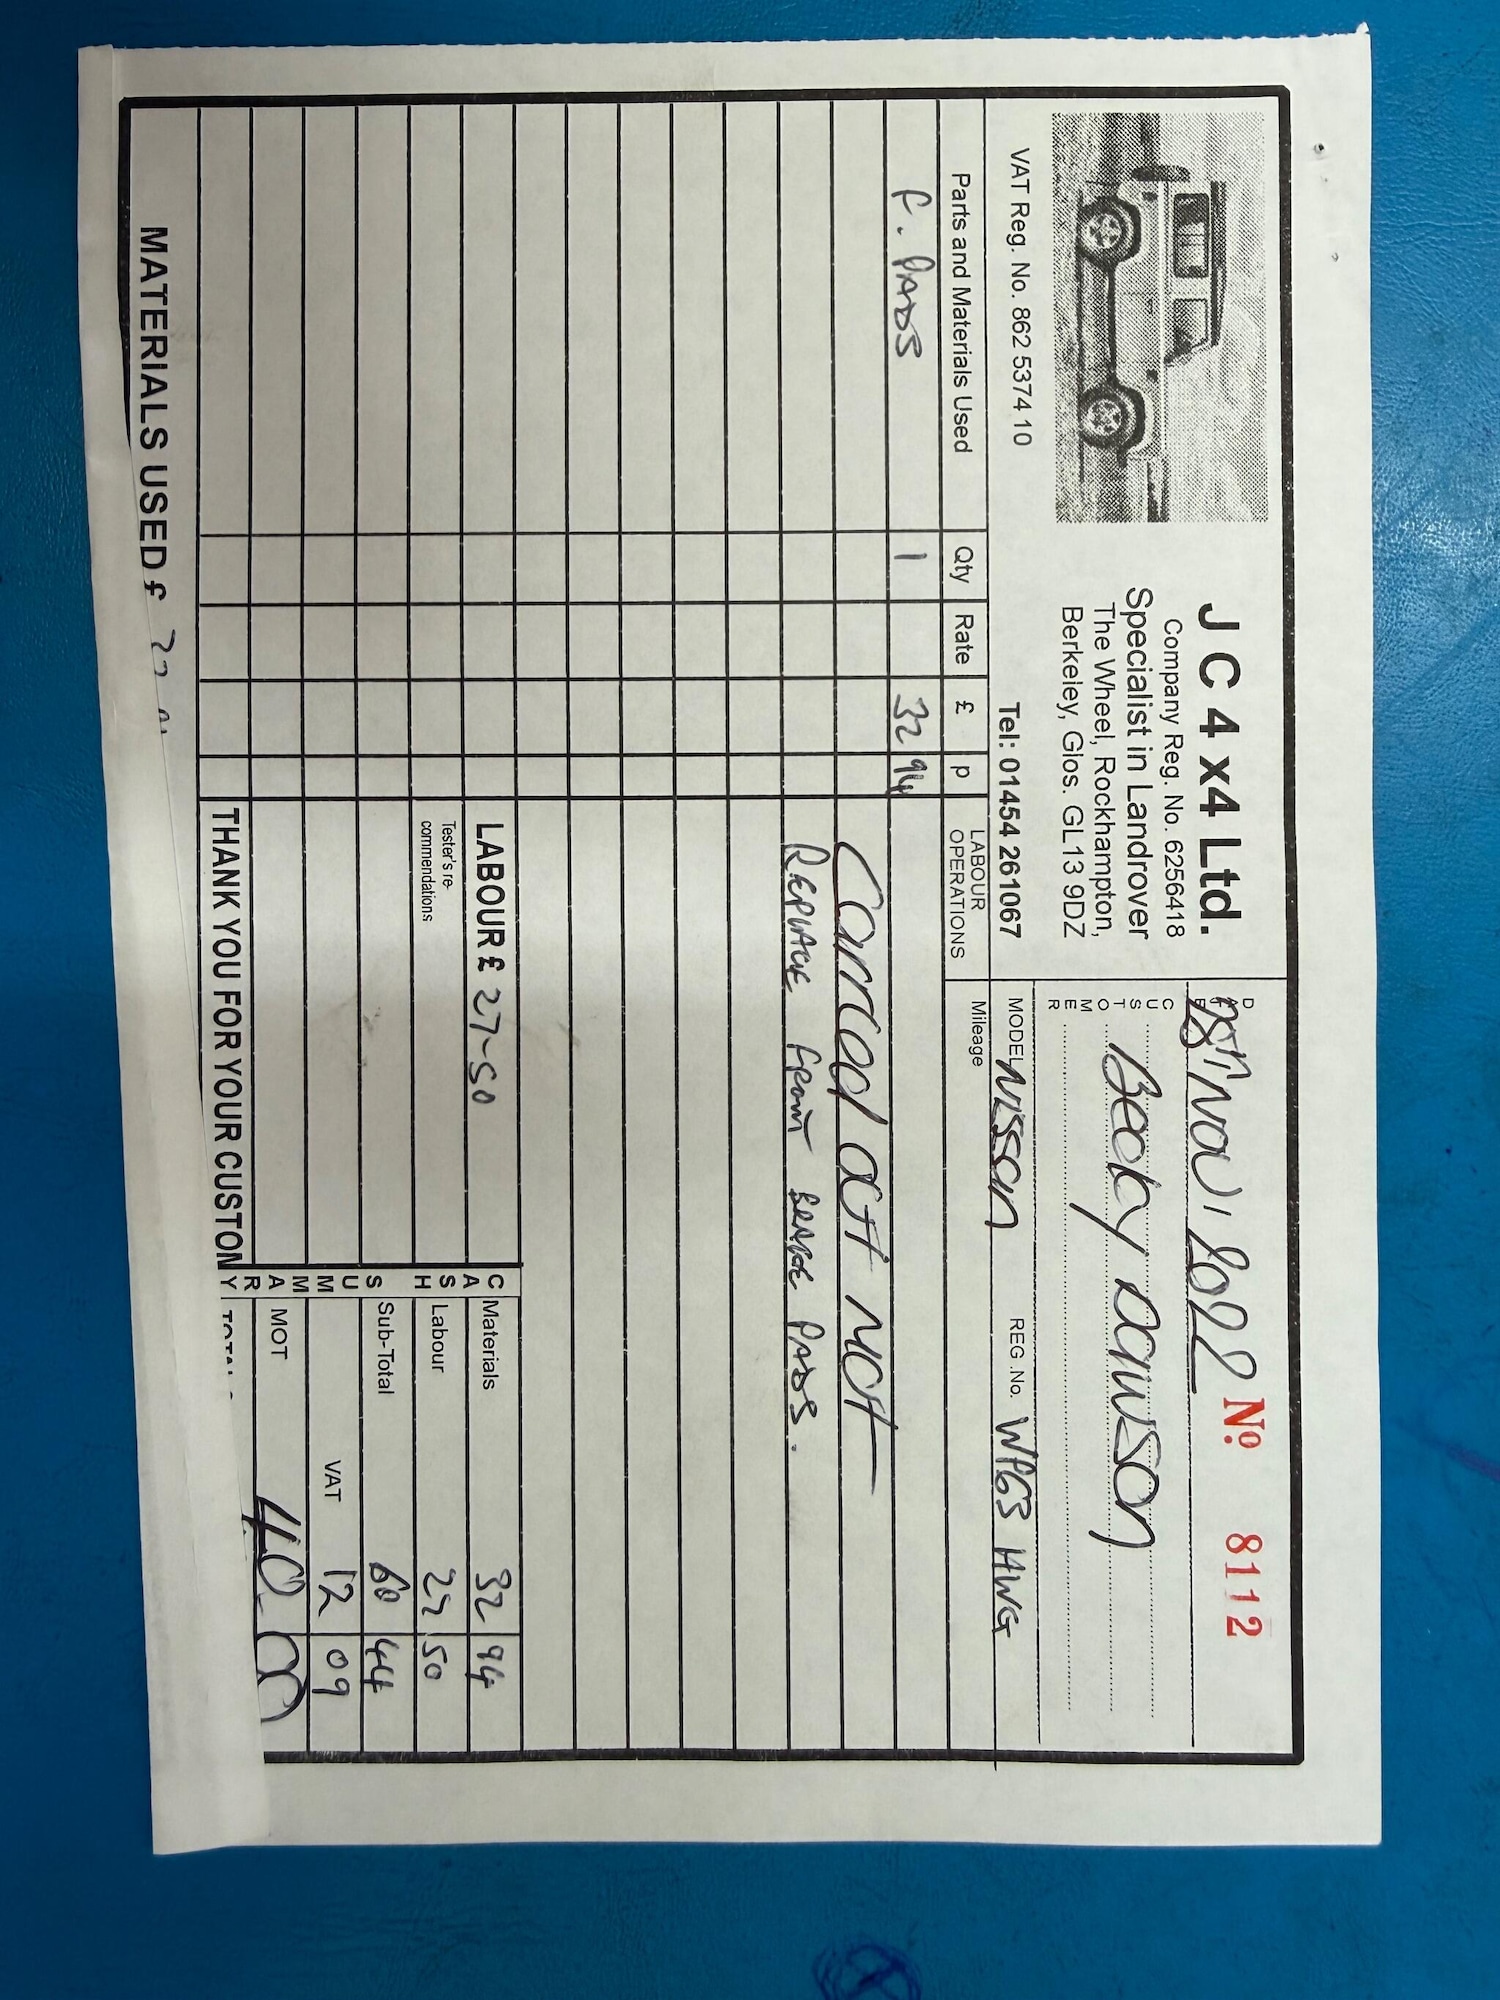 J C 4 x4 Ltd.
Company Reg. No. 6256418
Specialist in Landrover
The Wheel, Rockhampton,
Berkeley, Glos. GL13 9DZ
VAT Reg. No. 862 5374 10
Tel: 01454 261067
DATE
Nov, 2022
No. 8112
CUSTOMER
Becky
MODEL Nissan
REG .No. WP63 HWG
Mileage
Parts and Materials Used Qty Rate £ p
LABOUR OPERATIONS
F. PADS 1 32 94
Carried out MOT
REPLACE FRONT BRAKE PADS.
LABOUR £ 27-50
Tester's re-
commendations
CASH SUMMARY
Materials 32 94
Labour 27 50
Sub-Total 60 44
VAT 12 09
MOT 40-00
MATERIALS USED £
THANK YOU FOR YOUR CUSTOM